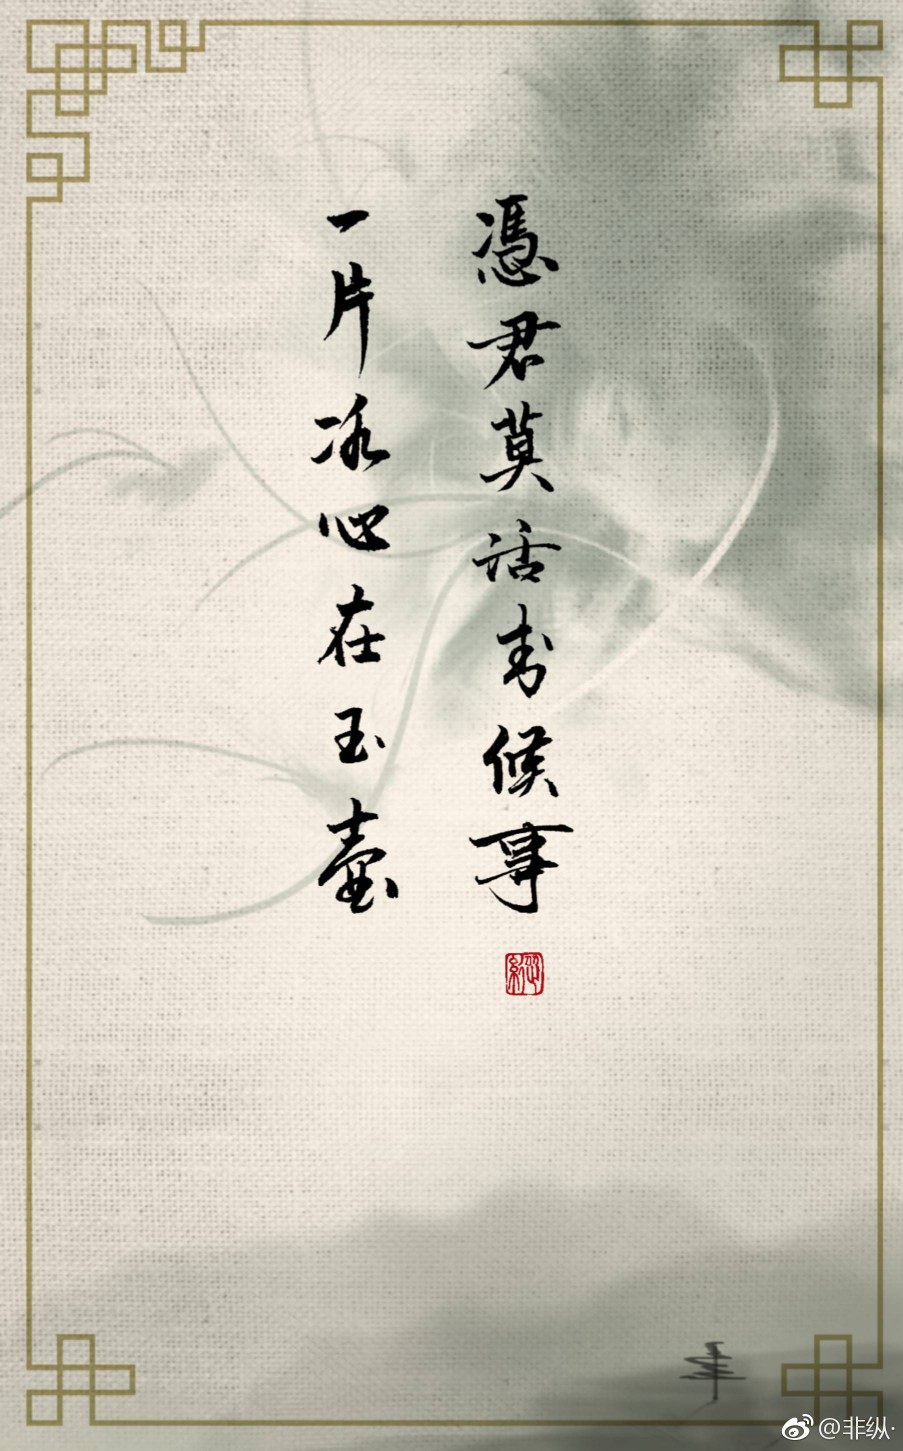 憑君莫話封候事
一片冰心在玉壺
縱
@非纵·